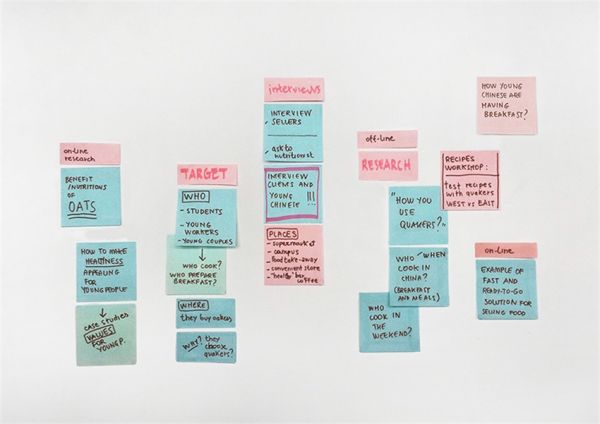 on-line
research
BENEFIT
/NUTRITIONS
OF
OATS
HOW TO MAKE
HEALTHINESS
APPEALING
FOR
YOUNG PEOPLE
CASE STUDIES
VALUES
FOR YOUNG P.
TARGET
WHO
- STUDENTS
- YOUNG
WORKERS
- YOUNG COUPLES
WHO COOK?
WHO PREPARE
BREAKFAST?
WHERE
they buy oakers
WHY? they
choose
quakers?
interviews
INTERVIEW
SELLERS
- ask to
nutritionist
INTERVIEW
CLIENTS AND
YOUNG
CHINESE !!!
PLACES
- supermarket
- campus
- food take-away
- convenient store
- "healthy" bar
coffee
off-line
RESEARCH
"HOW YOU
USE
QUAKERS?"
WHO / WHEN
COOK IN
CHINA?
(BREAKFAST
AND MEALS)
WHO
COOK IN
THE
WEEKEND?
HOW YOUNG
CHINESE ARE
HAVING
BREAKFAST?
RECIPES
WORKSHOP:
test recipes
with quakers
WEST vs EAST
on-line
EXAMPLE OF
FAST AND
READY-TO-GO
SOLUTION FOR
SELLING FOOD